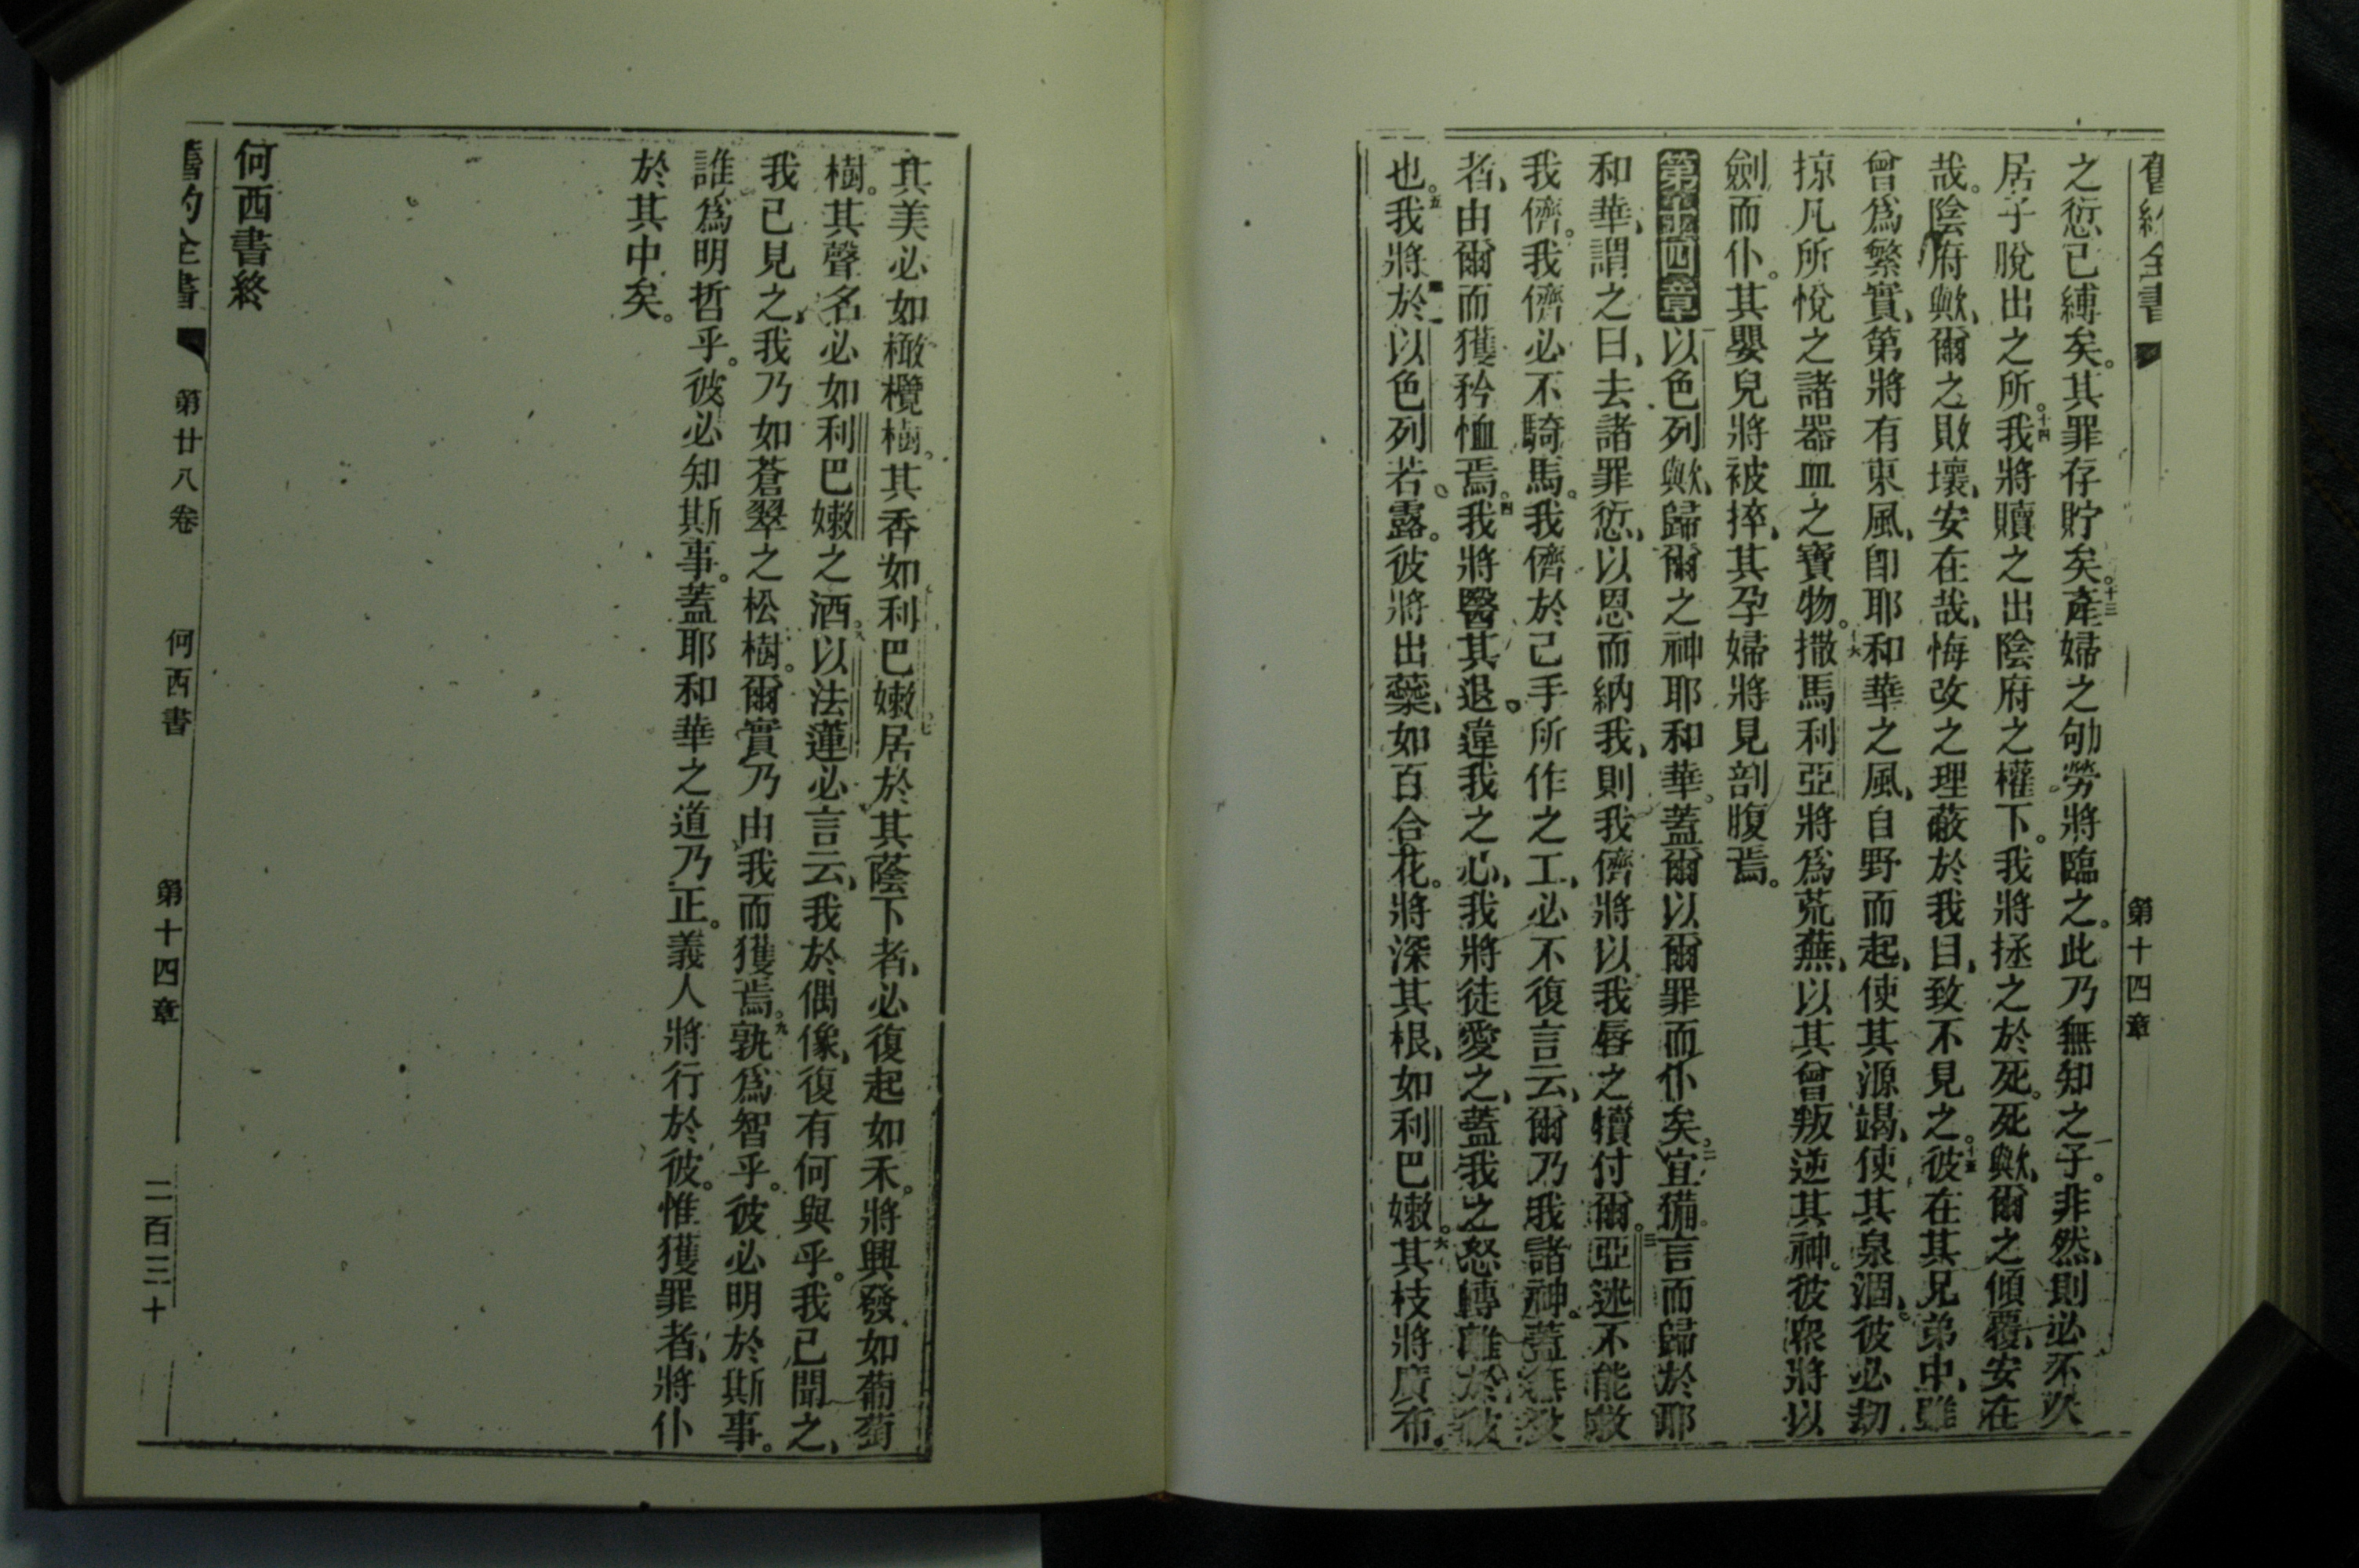 舊約全書 第十四章
之愆已縛矣。其罪存貯矣。十三產婦之劬勞將臨之。此乃無知之子。非然、則必不久
居子脫出之所。十四我將贖之出陰府之權下。我將拯之於死。死歟、爾之傾覆、安在
哉。陰府歟、爾之敗壞、安在哉、悔改之理蔽於我目、致不見之。十五彼在其兄弟中、雖
曾爲繁實、第將有東風、卽耶和華之風、自野而起、使其源竭、使其泉涸、彼必刧
掠凡所悅之諸器皿之寶物。十六撒馬利亞將爲荒蕪、以其曾叛逆其神。彼衆將以
劍而仆。其嬰兒將被捽、其孕婦將見剖腹焉。
第十四章 一以色列歟、歸爾之神耶和華。蓋爾以爾罪而仆矣。二宜備言而歸於耶
和華、謂之曰、去諸罪愆、以恩而納我、則我儕將以我唇之犢付爾。三亞述不能救
我儕。我儕必不騎馬。我儕於己手所作之工、必不復言云、爾乃我諸神。蓋無父
者、由爾而獲矜恤焉。四我將醫其退違我之心、我將徒愛之、蓋我之怒轉離於彼
也。五我將於以色列若露。彼將出蘂、如百合花。將深其根、如利巴嫩。六其枝將廣布。
其美必如橄欖樹。其香如利巴嫩七居於其蔭下者、必復起如禾。將興發如葡萄
樹。其聲名必如利巴嫩之酒。八以法蓮必言云、我於偶像、復有何與乎。我已聞之、
我已見之、我乃如蒼翠之松樹。爾實乃由我而獲焉。九孰爲智乎。彼必明於斯事。
誰爲明哲乎。彼必知斯事。蓋耶和華之道乃正。義人將行於彼。惟獲罪者、將仆
於其中矣。
何西書終
舊約全書 第廿八卷 何西書 第十四章 二百三十